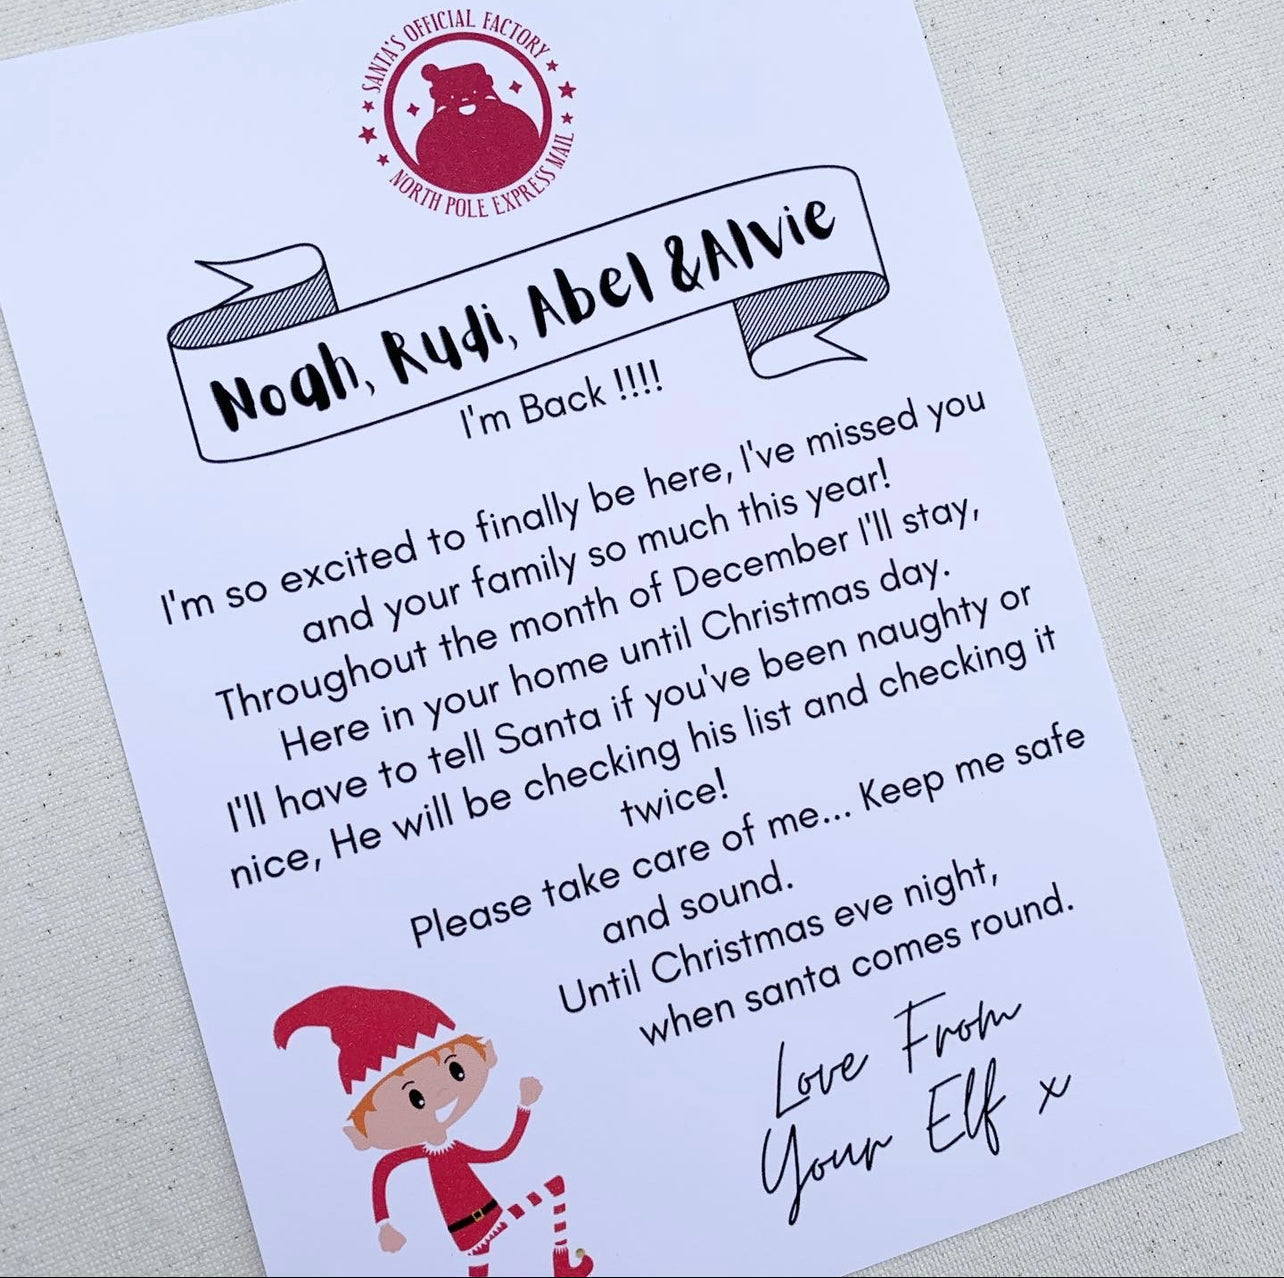 SANTA'S OFFICIAL FACTORY
NORTH POLE EXPRESS MAIL
Noah, Rudi, Abel &Alvie
I'm Back !!!!
I'm so excited to finally be here, I've missed you
and your family so much this year!
Throughout the month of December I'll stay,
Here in your home until Christmas day.
I'll have to tell Santa if you've been naughty or
nice, He will be checking his list and checking it
twice!
Please take care of me... Keep me safe
and sound.
Until Christmas eve night,
when santa comes round.
Love From
Your Elf x